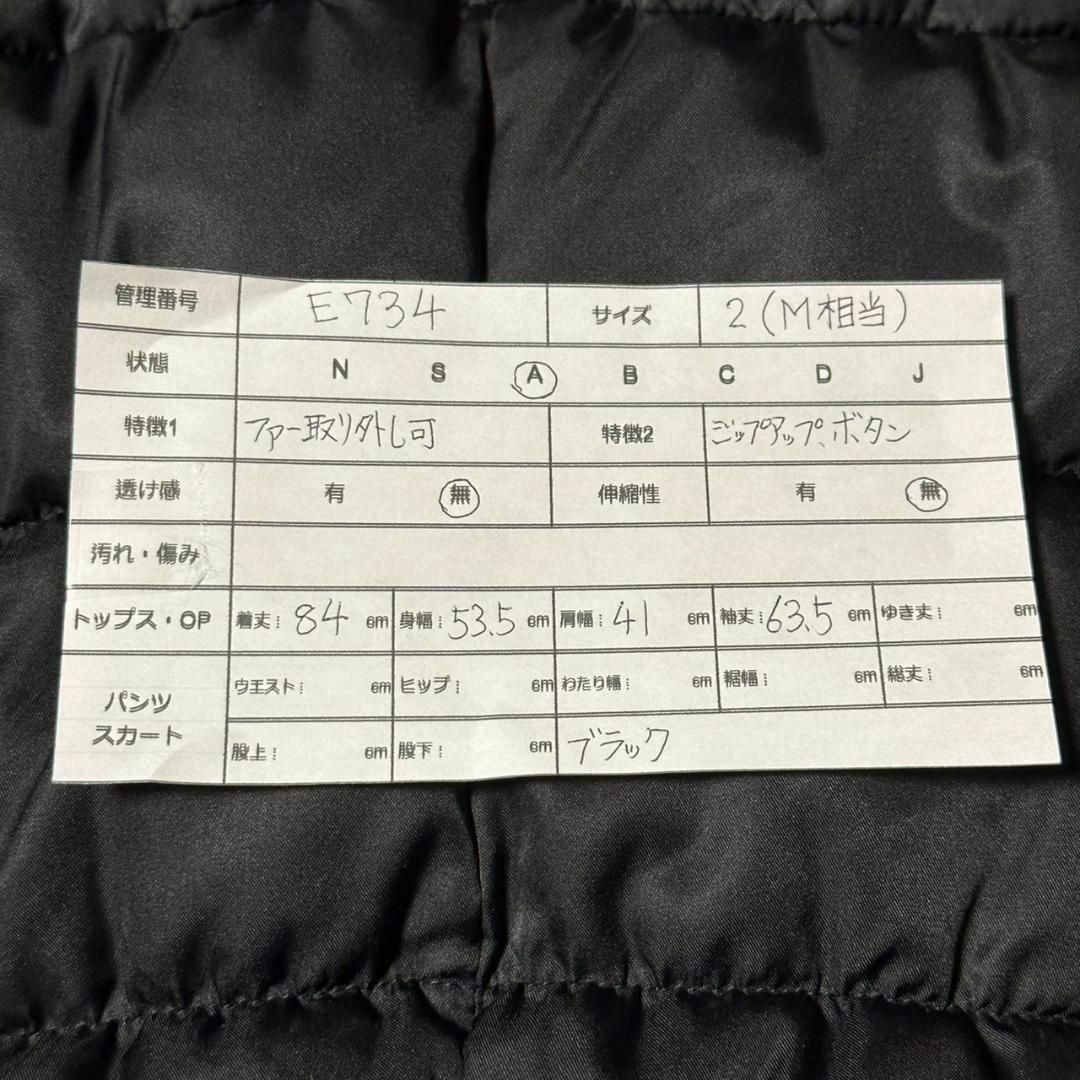 管理番号 E734 サイズ 2(M相当)
状態 N S A B C D J
特徴1 ファー取り外し可 特徴2 ジップアップ、ボタン
透け感 有 無 伸縮性 有 無
汚れ・傷み
トップス・OP 着丈： 84 cm 身幅： 53.5 cm 肩幅： 41 cm 袖丈： 63.5 cm ゆき丈： cm
パンツ スカート ウエスト： cm ヒップ： cm わたり幅： cm 裾幅： cm 総丈： cm
股上： cm 股下： cm ブラック